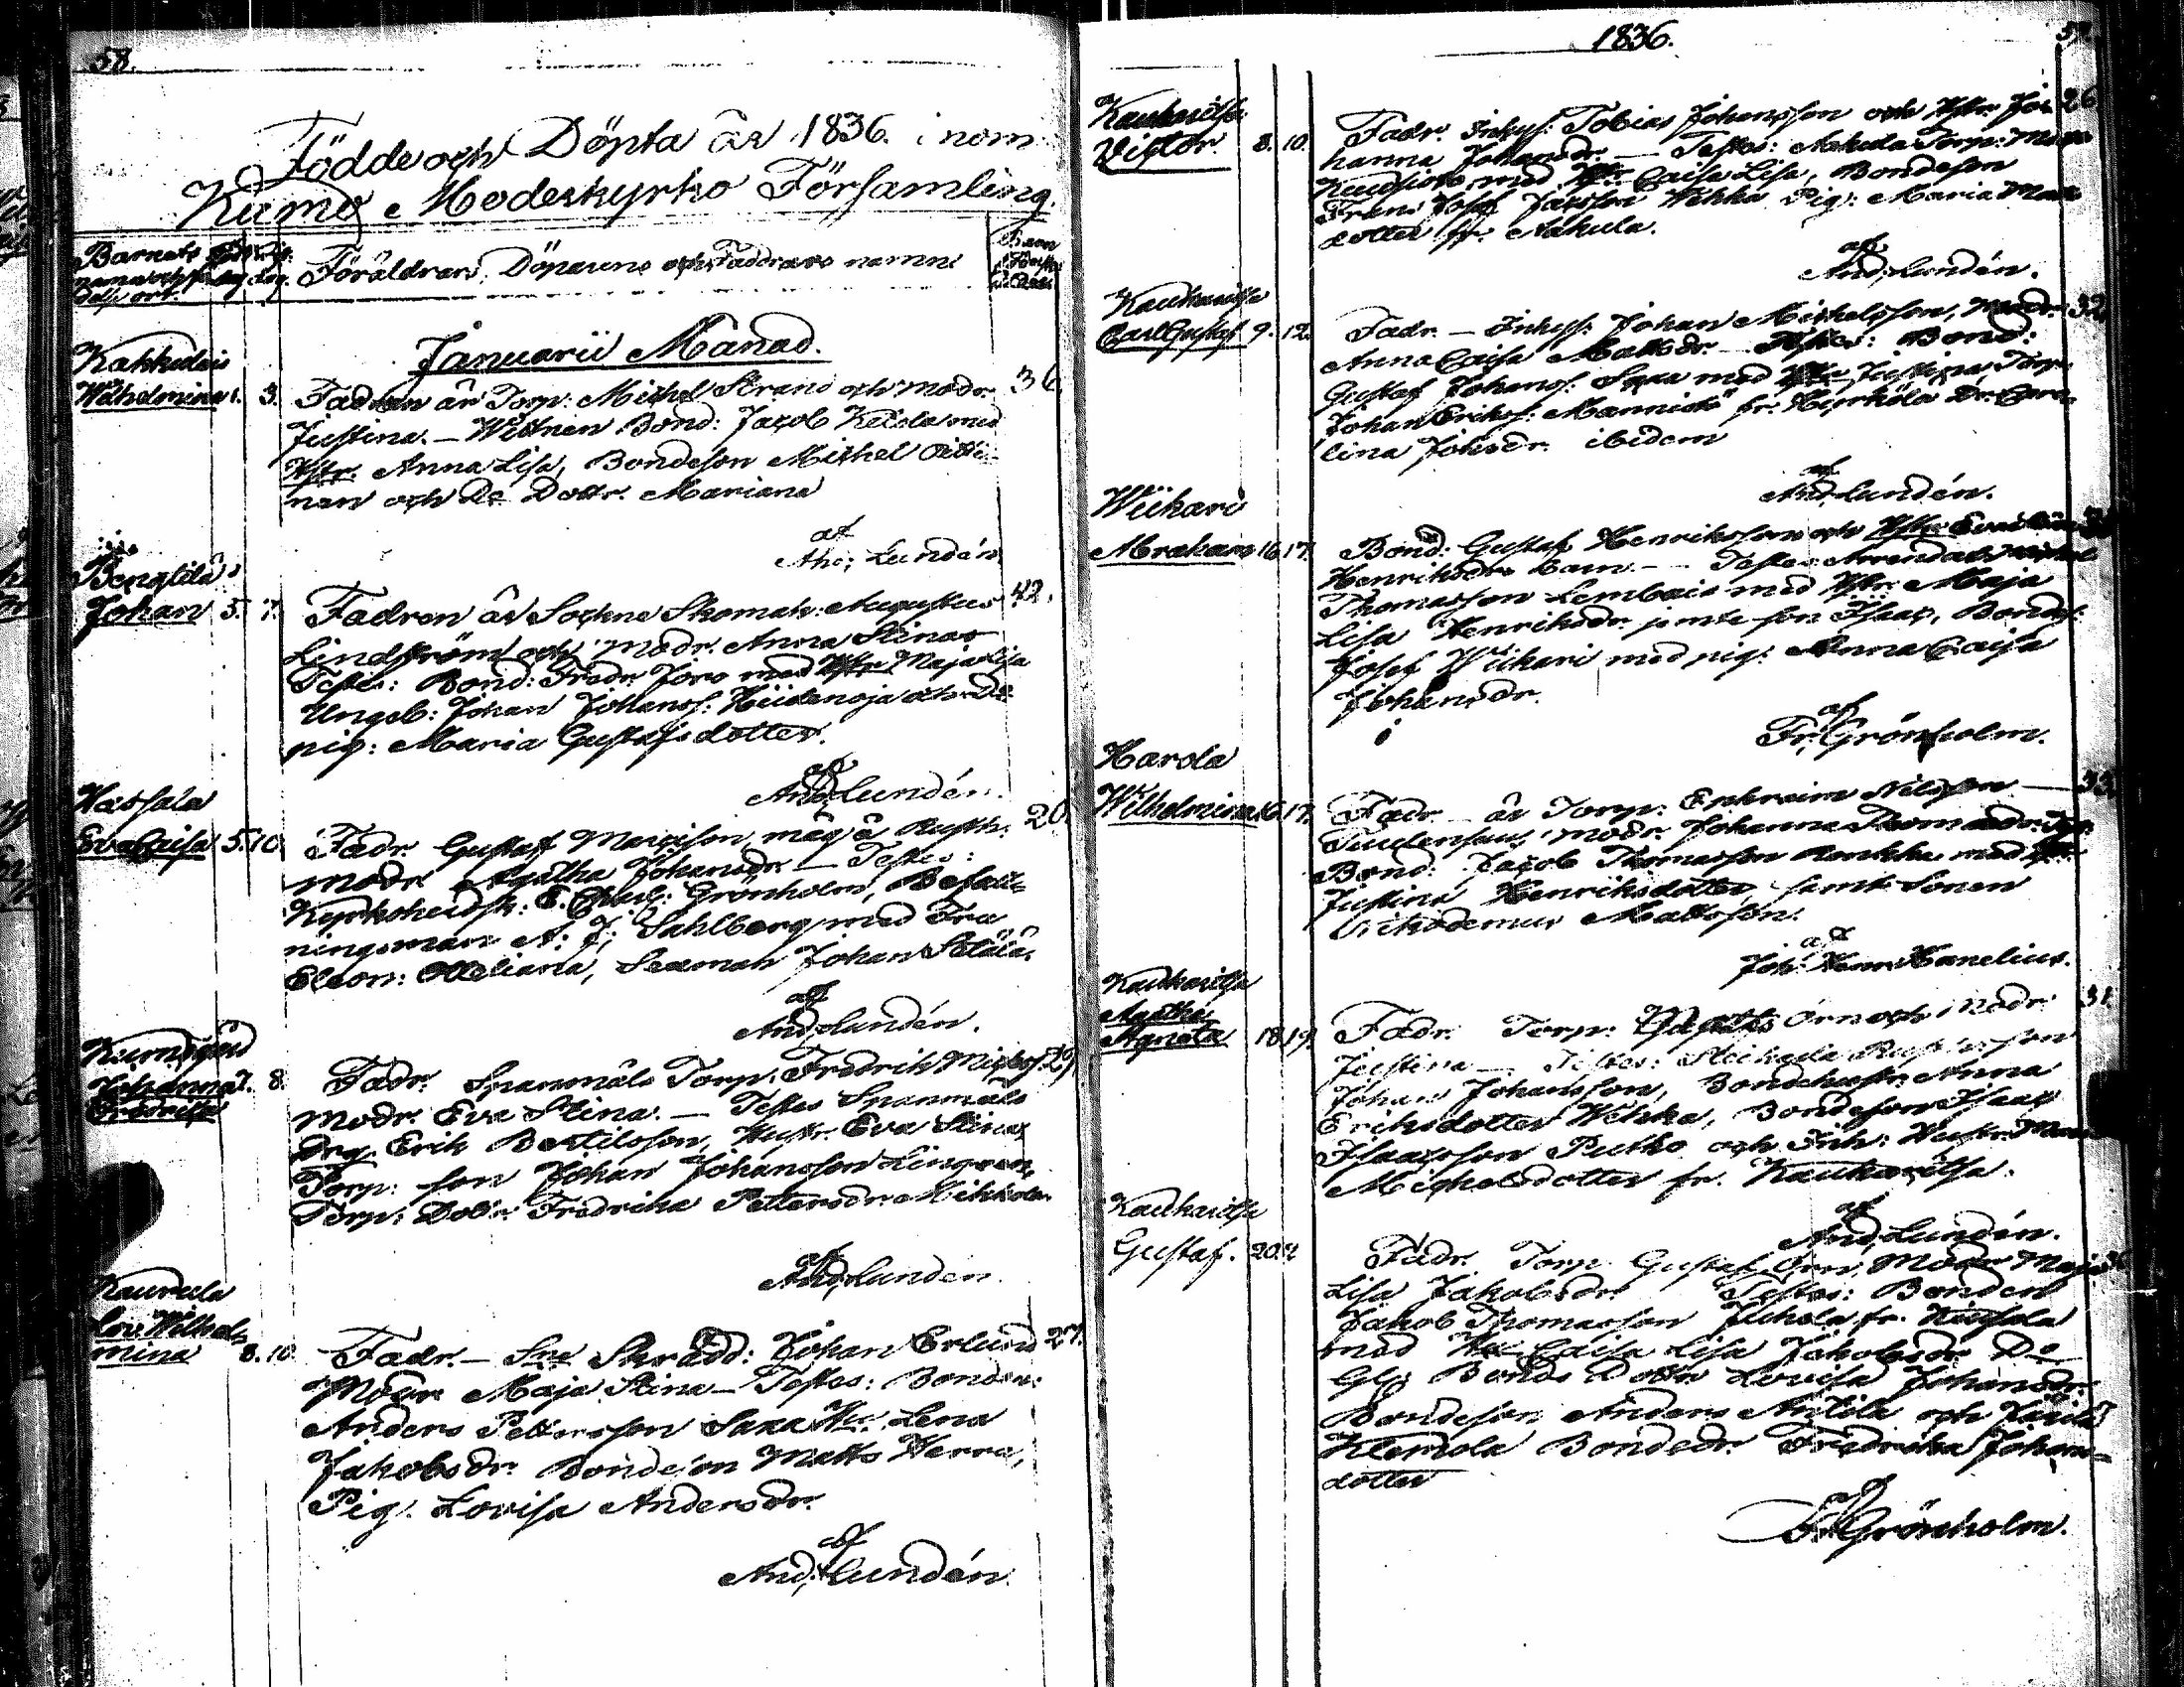 58.
Födde och Döpta år 1836. inom
Kumo Moderkyrko Församling.
Barnets
namn och fö-
delse ort.
dag dag.
Föräldrars, Döparens och Faddrars namn
Barn
Januarii Månad.
Kakkulais
Wilhelmina 1. 3. Fadren är Torp: Michel Strand och modr. 36.
Justina. — Wittnen Bond: Jacob Keidola med
Hstr. Anna Lisa, Bondeson Michel
nen och De Dottr. Mariana
af
And; Lundén
Bengtilä
Johan 5. 7. Fadren är Sockne Skomak: Augustus 42.
Lindström och modr. Anna Stina
Testes: Bond: Fredr. Joro med Hstr. Maja Lisa
Ungk: Johan Johanss: Hiidenoja och De
pig: Maria Gustafsdotter.
af
And; Lundén.
Hassala
Eva Caisa 5. 10. Fadr. Gustaf Marcison, måg å Rusth. 20.
modr. Agatha Johansdr. — Testes:
Grönholm, Befall-
ningsman A: J: Sahlberg med Fru
Eleon: Ottiliana, Sexman Johan Setälä.
af
And; Lundén.
Kumogård
Johanna 7. 8. Fadr. Spannmåls Torp. Fredrik Michelss. 29.
Fredrika
Modr. Eva Stina. — Testes Spannmåls
Drg. Erik Bertilsson, Hustr. Eva Stina,
Torp: son Johan Johansson Lingren,
Torp: Dottr. Fredrika Pettersdr. Mikkola.
af
And; Lundén.
Kaurula
Lov. Wilhel-
mina 8. 10. Fadr. — Sne Skrädd: Johan Erlund 27.
Modr. Maja Stina — Testes: Bonden:
Anders Pettersson Saxa Hu. Lena
Jakobsdr. Bondeson Matts Herra,
Pig. Lovisa Andersdr.
af
And; Lundén.
1836.
Kauharitsa
Victor. 8. 10. Fadr. Inhys: Tobias Johansson och Hstr. Jo- 26
hanna Johansdr. — Testes: Aakula Torp:
med Hstr. Caisa Lisa, Bondeson
Frans Josef Wehka Pig: Maria
dotter fr. Aakula.
af
And; Lundén.
Kauharitsa
Carl Gustaf 9. 12. Fadr. — Inhys: Johan Michelsson, Modr. 32
Anna Caisa Mattsdr. — Testes: Bond:
Gustaf Johanss: Saxa med Hstr. Justina, Torp:
Johan Erikss: Mannistö fr. Kyrkölä Dr. Caro-
lina Johsdr. ibidem
af
And; Lundén.
Wiikari
Abraham 16. 17. Bond: Gustaf Henriksson och Hstr. Eva
Henriksdrs barn. — Testes Arrendat:
Thomasson Lembais med Hstr. Maja
Lisa Henriksdr. jemte son Isaac, Bonds:
Josef Wiikari med pig: Anna Caisa
Johansdr.
af
Fr; Grönholm.
Harola
Wilhelmina 16. 17. Fadr. är Torp: Ephraim Nilsson — 33.
modr. Johanna Thomasdr.
Bond: Jacob Thomasson Ronkka med Hstr.
Justina Henriksdotter, samt Sonen
Nikodemus Mattsson.
af
Joh: Henr. Hanelius.
Kauharitsa
Agatha
Agneta 18. 19. Fadr. Torp: Örn och Modr. 31
Justina — Testes: Rusth. son
Johan Johansson, Bondehustr. Anna
Eriksdotter Wehka, Bondeson Isaac
Isaacsson Putko och Inh: Hustr.
Michelsdotter fr. Kauharitsa.
af
And; Lundén.
Kauharitsa
Gustaf. 20. Fadr. Torp. Gustaf Örn, Modr Maja
Lisa Jakobsdr. Testes: Bonden
Jakob Thomasson Juhola fr.
med Hu Caisa Lisa Jakobsdr. Do
Glg. Bonds Dottr. Lovisa Johansdr.
Bondeson Anders Antila och
Klemola Bondedr. Fredrika Johans-
dotter
af
Fr. Grönholm.